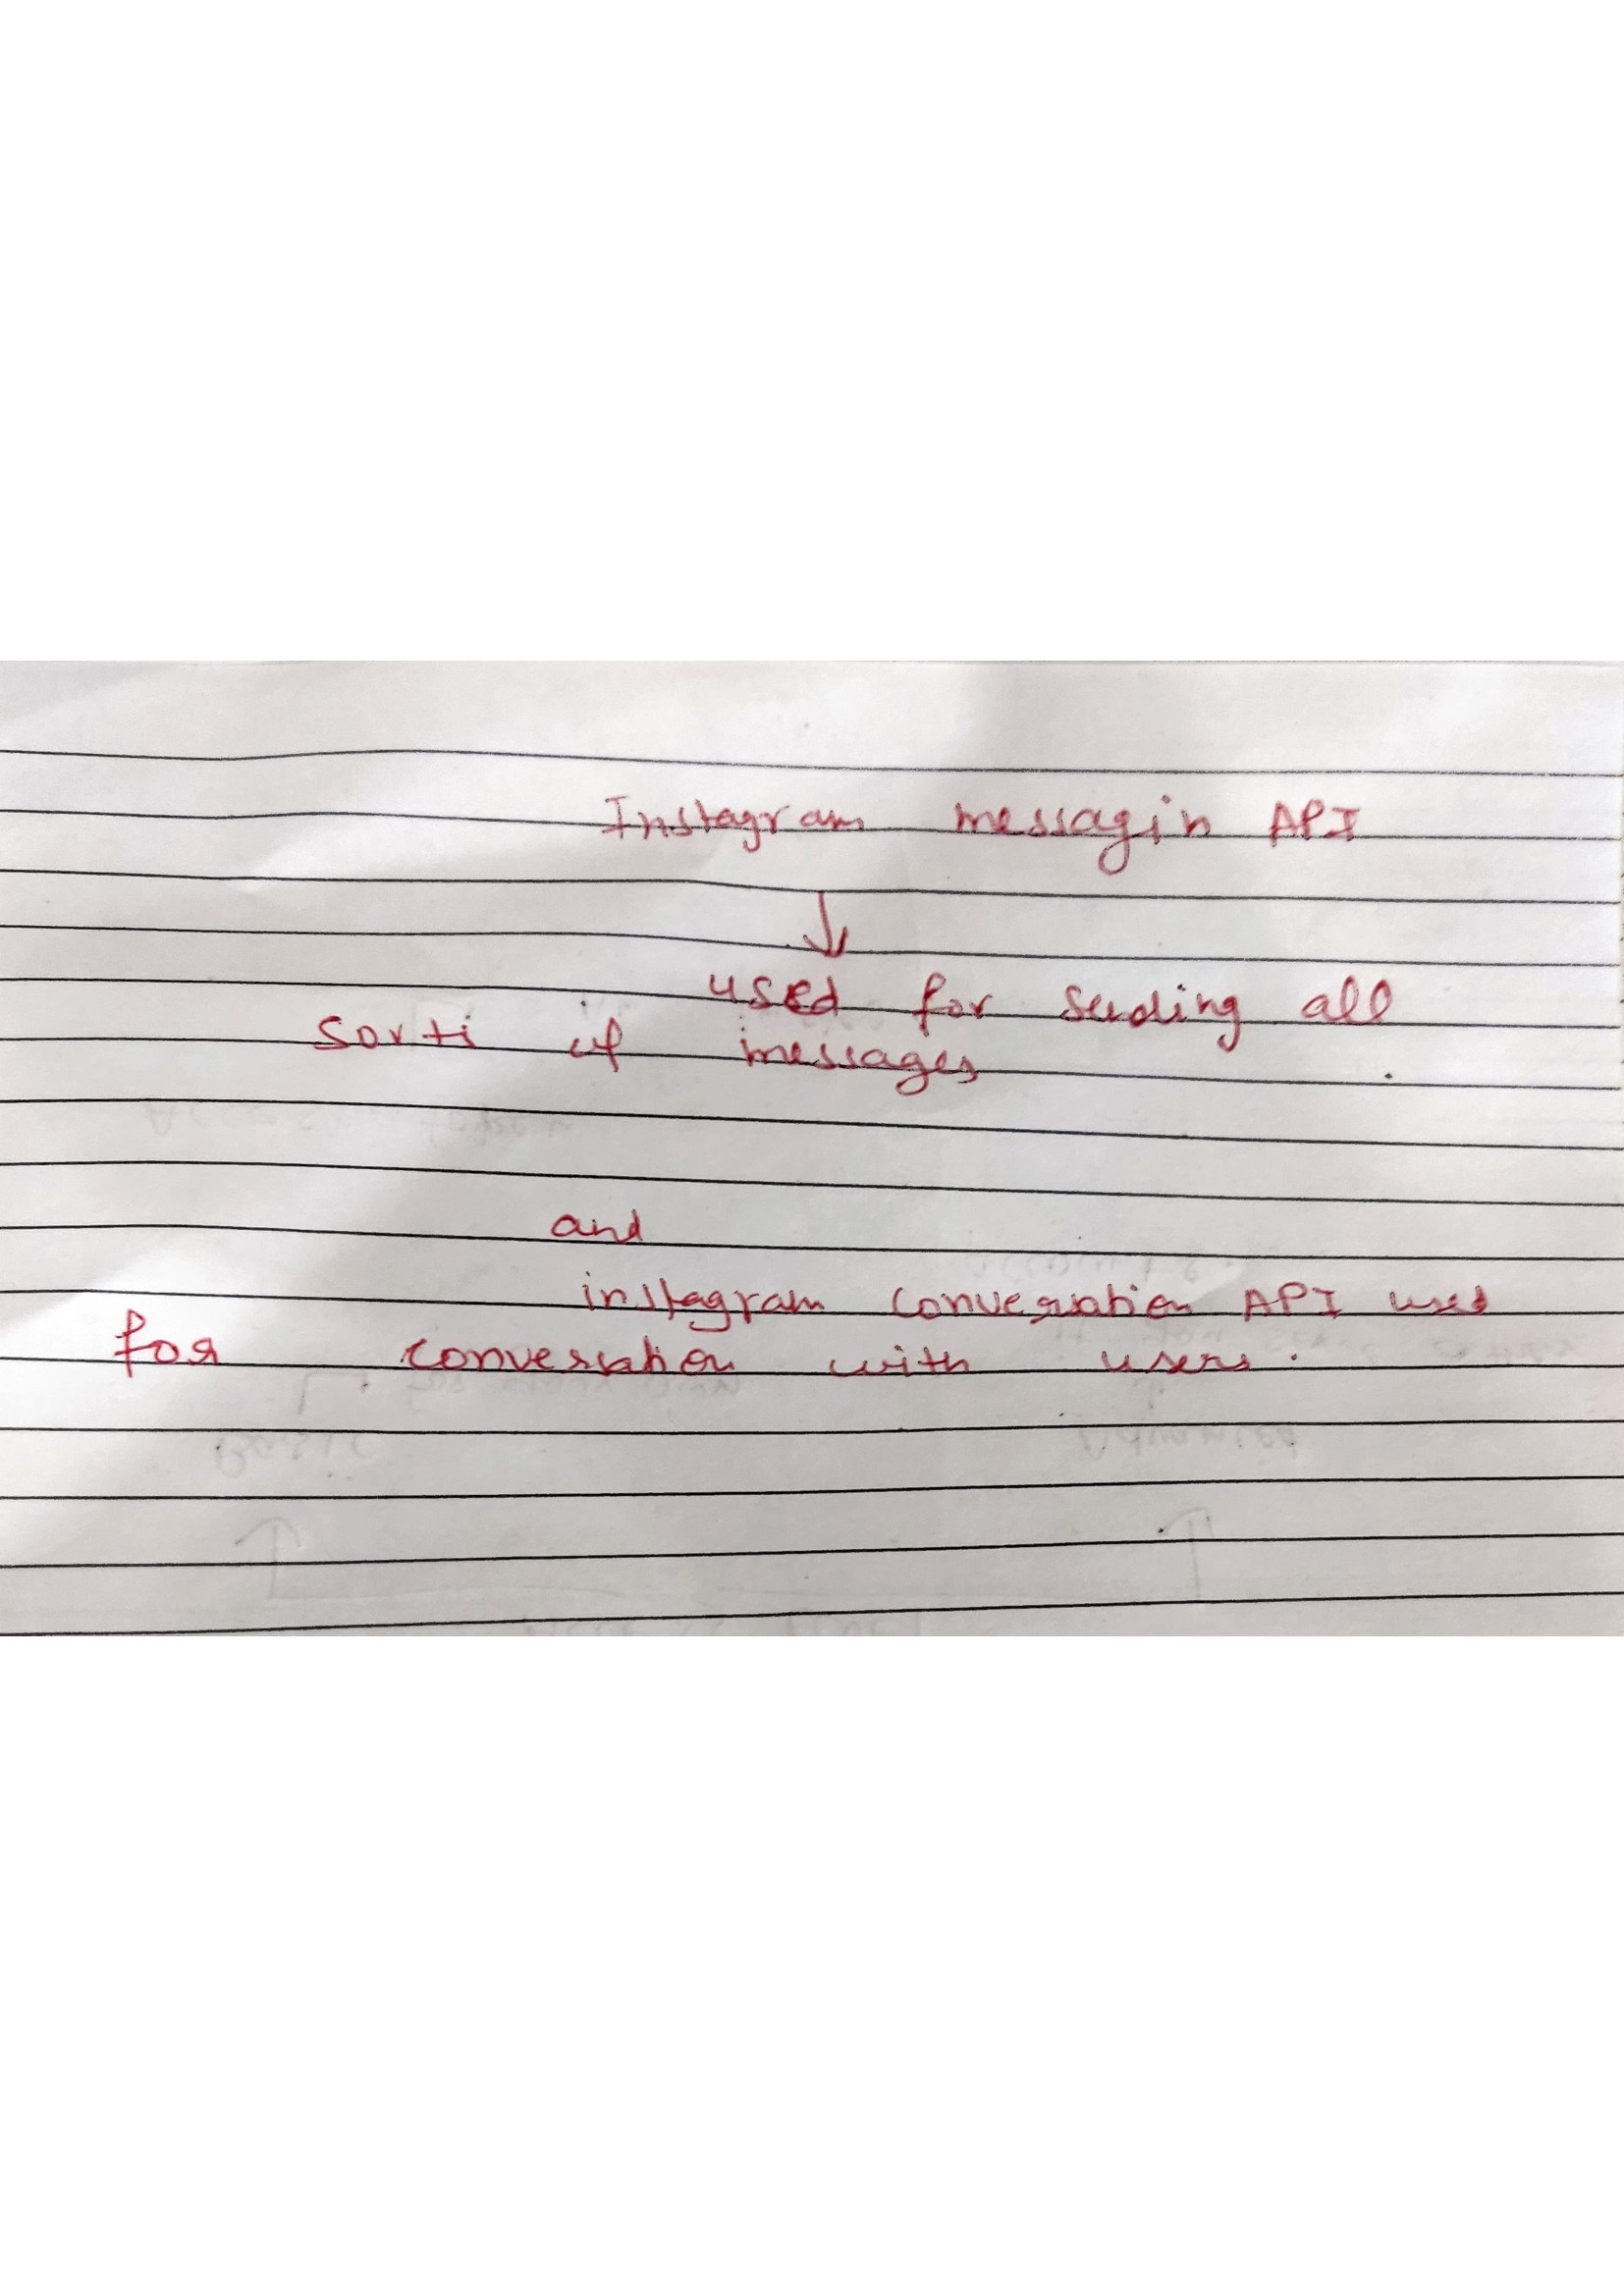 Instagram messagin API
↓
used for sending all
sorti of messages
and
instagram conversation API used
for conversation with users.